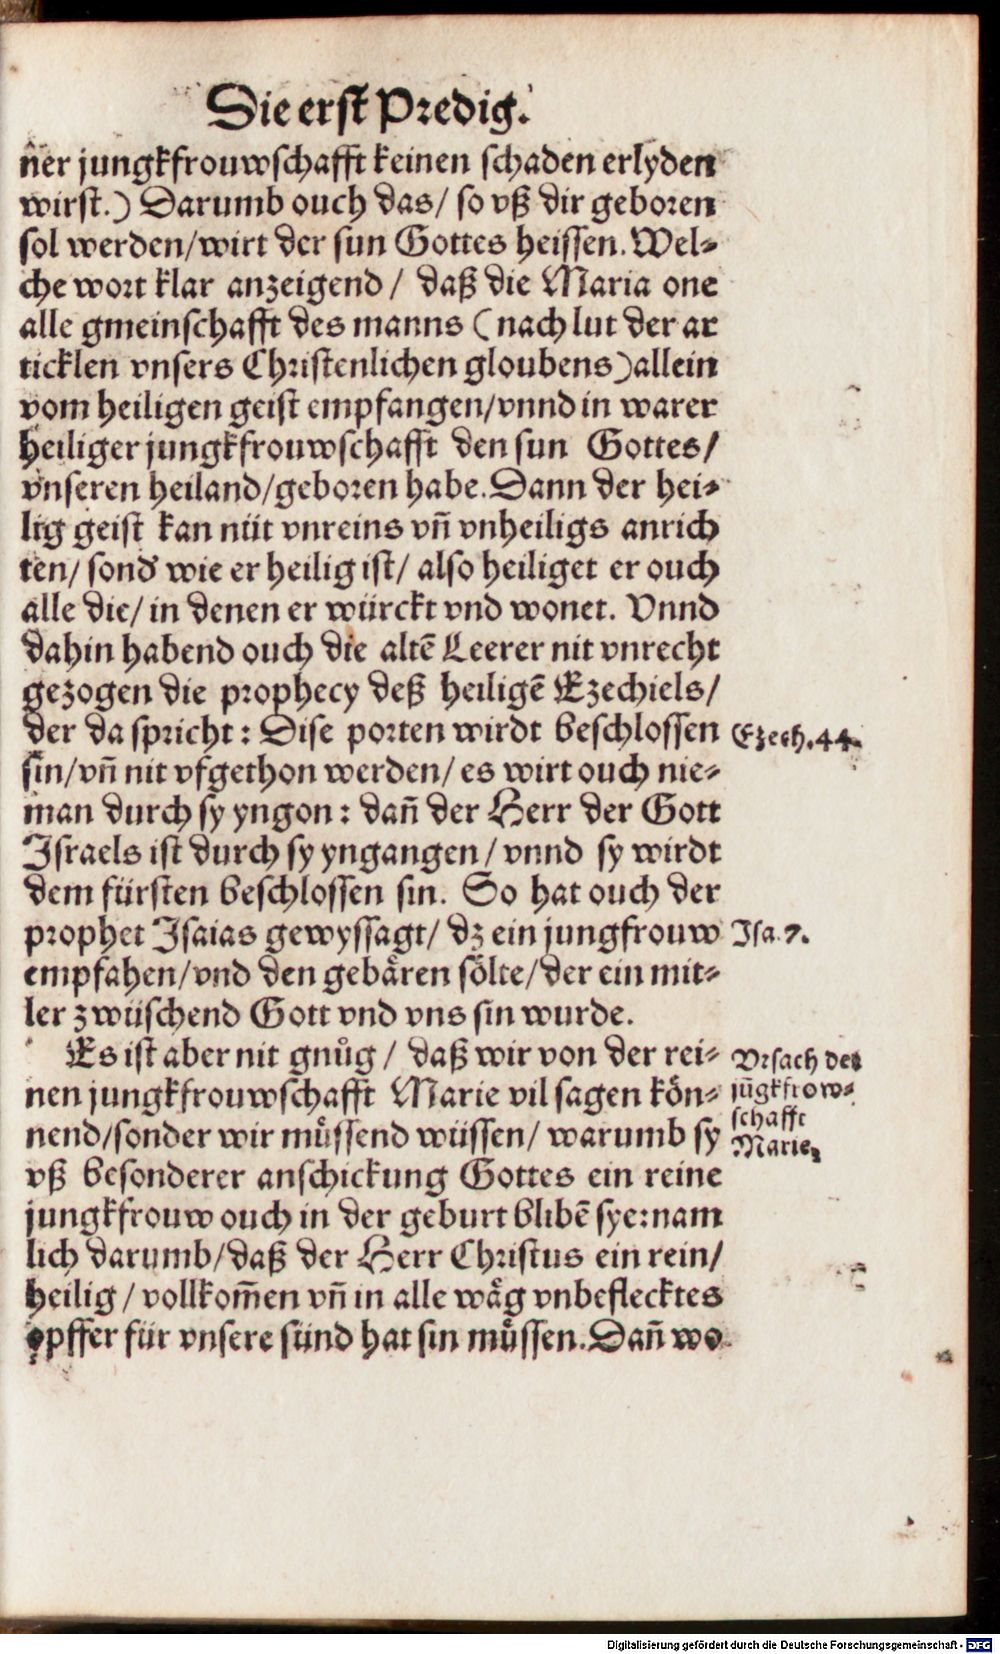 Die erst Predig.
ner jungkfrouwschafft keinen schaden erlyden
wirst.) Darumb ouch das/ so vß dir geboren
sol werden/wirt der sun Gottes heissen. Wel⸗
che wort klar anzeigend/ daß die Maria one
alle gmeinschafft des manns (nach lut der ar
ticklen vnsers Christenlichen gloubens)allein
vom heiligen geist empfangen/vnnd in warer
heiliger jungkfrouwschafft den sun Gottes/
vnseren heiland/geboren habe. Dann der hei⸗
lig geist kan nüt vnreins vn̄ vnheiligs anrich
ten/ sond' wie er heilig ist/ also heiliget er ouch
alle die/ in denen er würckt vnd wonet. Vnnd
dahin habend ouch die altē Leerer nit vnrecht
gezogen die prophecy deß heiligē Ezechiels/
der da spricht: Dise porten wirdt beschlossen
Ezech. 44.
sin/vn̄ nit vfgethon werden/ es wirt ouch nie⸗
man durch sy yngon: dan̄ der Herr der Gott
Israels ist durch sy yngangen/ vnnd sy wirdt
dem fürsten beschlossen sin. So hat ouch der
prophet Isaias gewyssagt/ dz ein jungfrouw
Isa. 7.
empfahen/vnd den gebåren sölte/der ein mit⸗
ler zwüschend Gott vnd vns sin wurde.
Es ist aber nit gnůg/ daß wir von der rei⸗
nen jungkfrouwschafft Marie vil sagen kön⸗
nend/sonder wir müssend wüssen/ warumb sy
vß besonderer anschickung Gottes ein reine
jungkfrouw ouch in der geburt blibē sye: nam
lich darumb/daß der Herr Christus ein rein/
heilig/ vollkom̄en vn̄ in alle wåg vnbeflecktes
opffer für vnsere sünd hat sin müssen. Dan̄ wo
Vrsach der
jūgkfrow⸗
schafft
Marie.
Digitalisierung gefördert durch die Deutsche Forschungsgemeinschaft - DFG